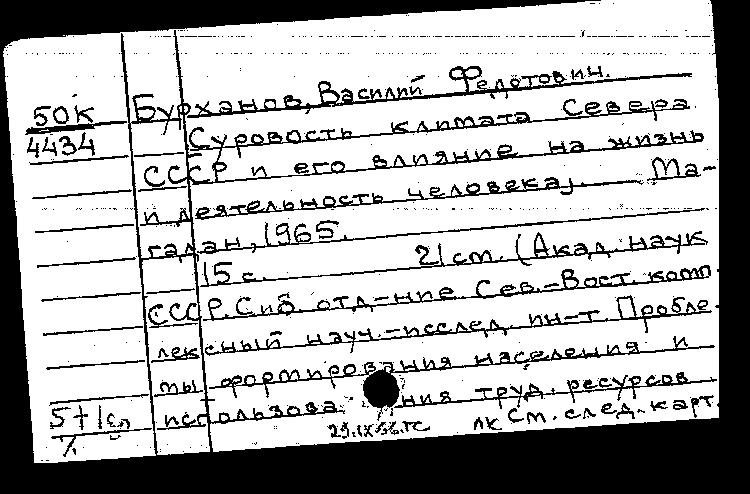 50К
4434
Бурханов, Василий Федотович.
Суровость климата Севера
СССР и его влияние на жизнь
и деятельность человека]. — Ма-
гадан, 1965.
15 с. 21 см. (Акад. наук
СССР. Сиб. отд-ние Сев.-Вост. комп-
лексный науч.-исслед. ин-т. Пробле-
мы формирования населения и
использования труд. ресурсов
5+1
29.IX 66. лк См. след. карт.